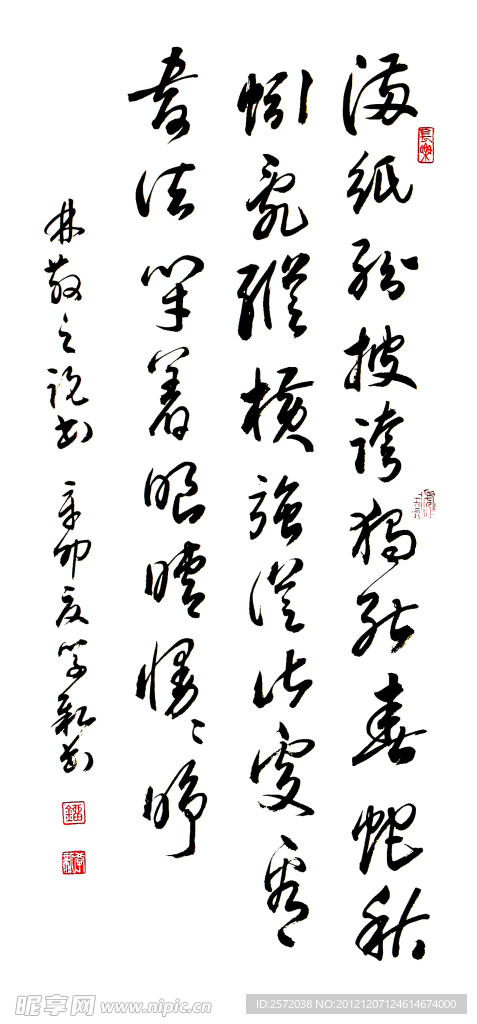 滿紙紛披誇獨能春蛇秋
蚓亂縱橫強從此處看
書法閉着眼睛慢慢睜
林散之說書 辛卯夏學書
昵享网 www.nipic.cn
ID:2572038 NO:20121207124614674000